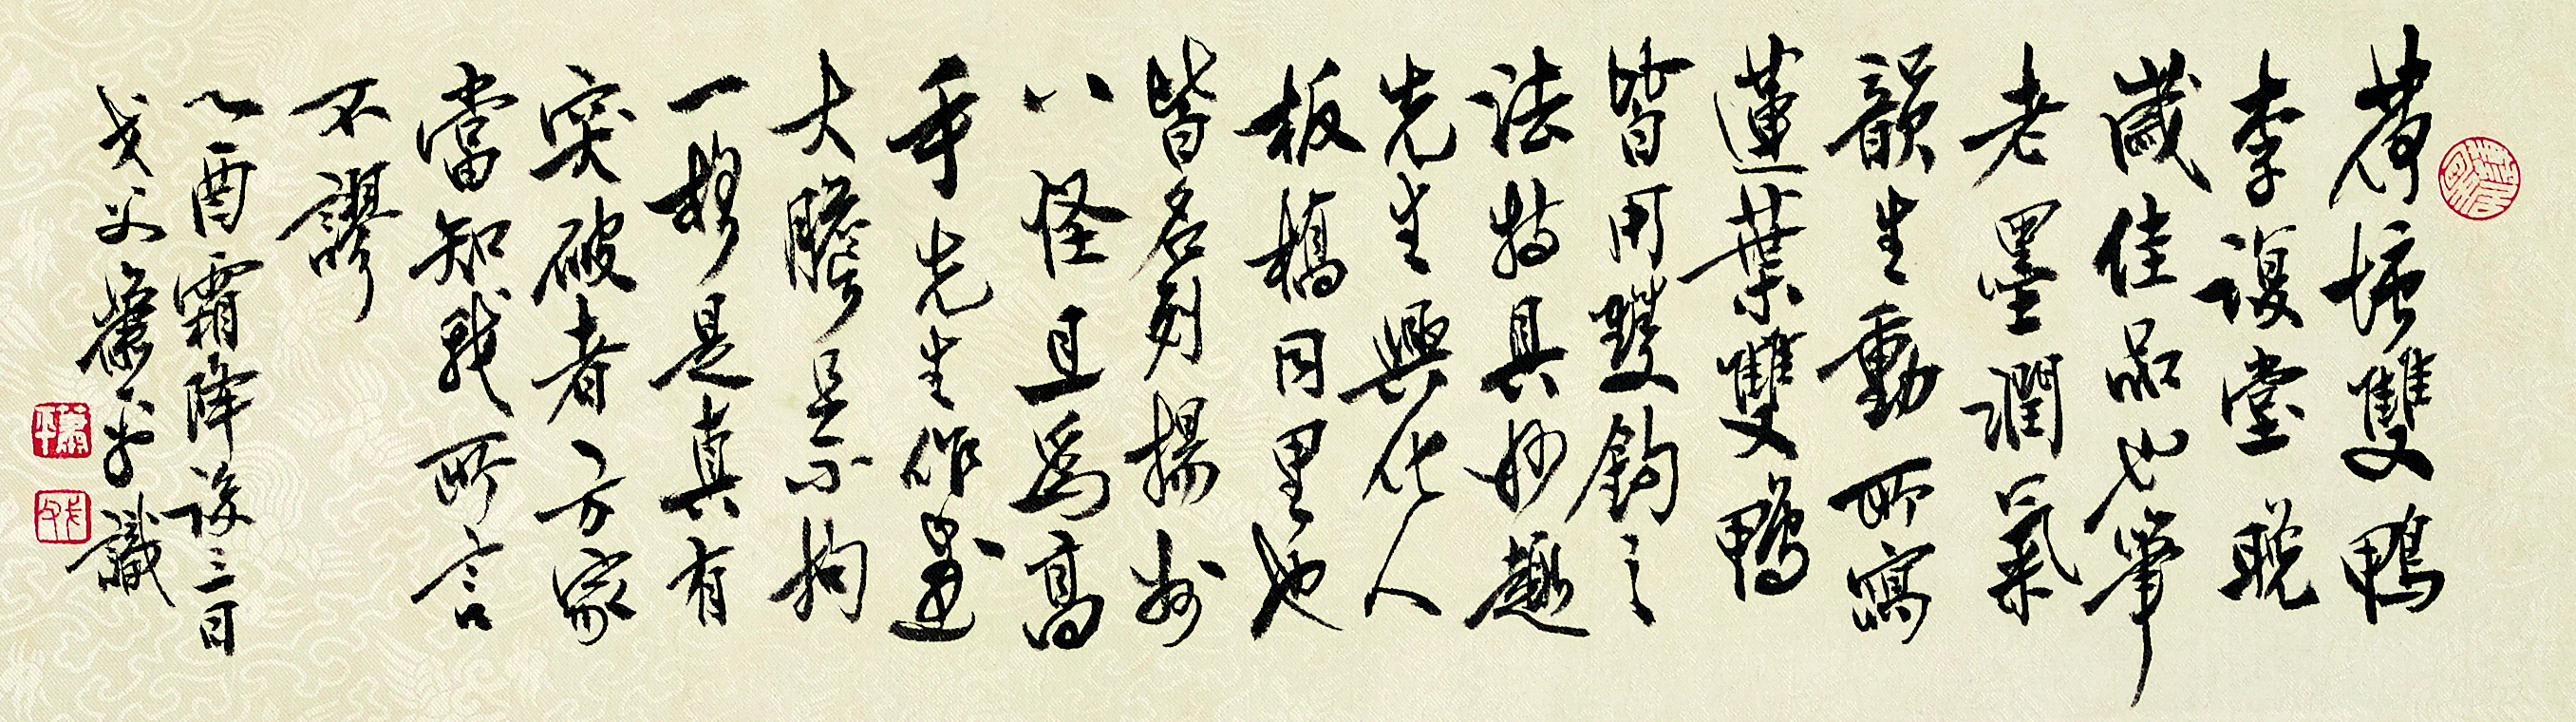 荷塘雙鴨
李復堂晚
歲佳品也筆
老墨潤氣
韻生動所寫
蓮葉雙鴨
皆用雙鈎之
法特具妙趣
先生興化人
板橋同里也
皆名列揚州
八怪且爲高
手先生作畫
大膽是不拘
一格是真有
突破者方家
當知我所言
不謬
乙酉霜降後三日
戈父蕭平識
蕭平
戈父